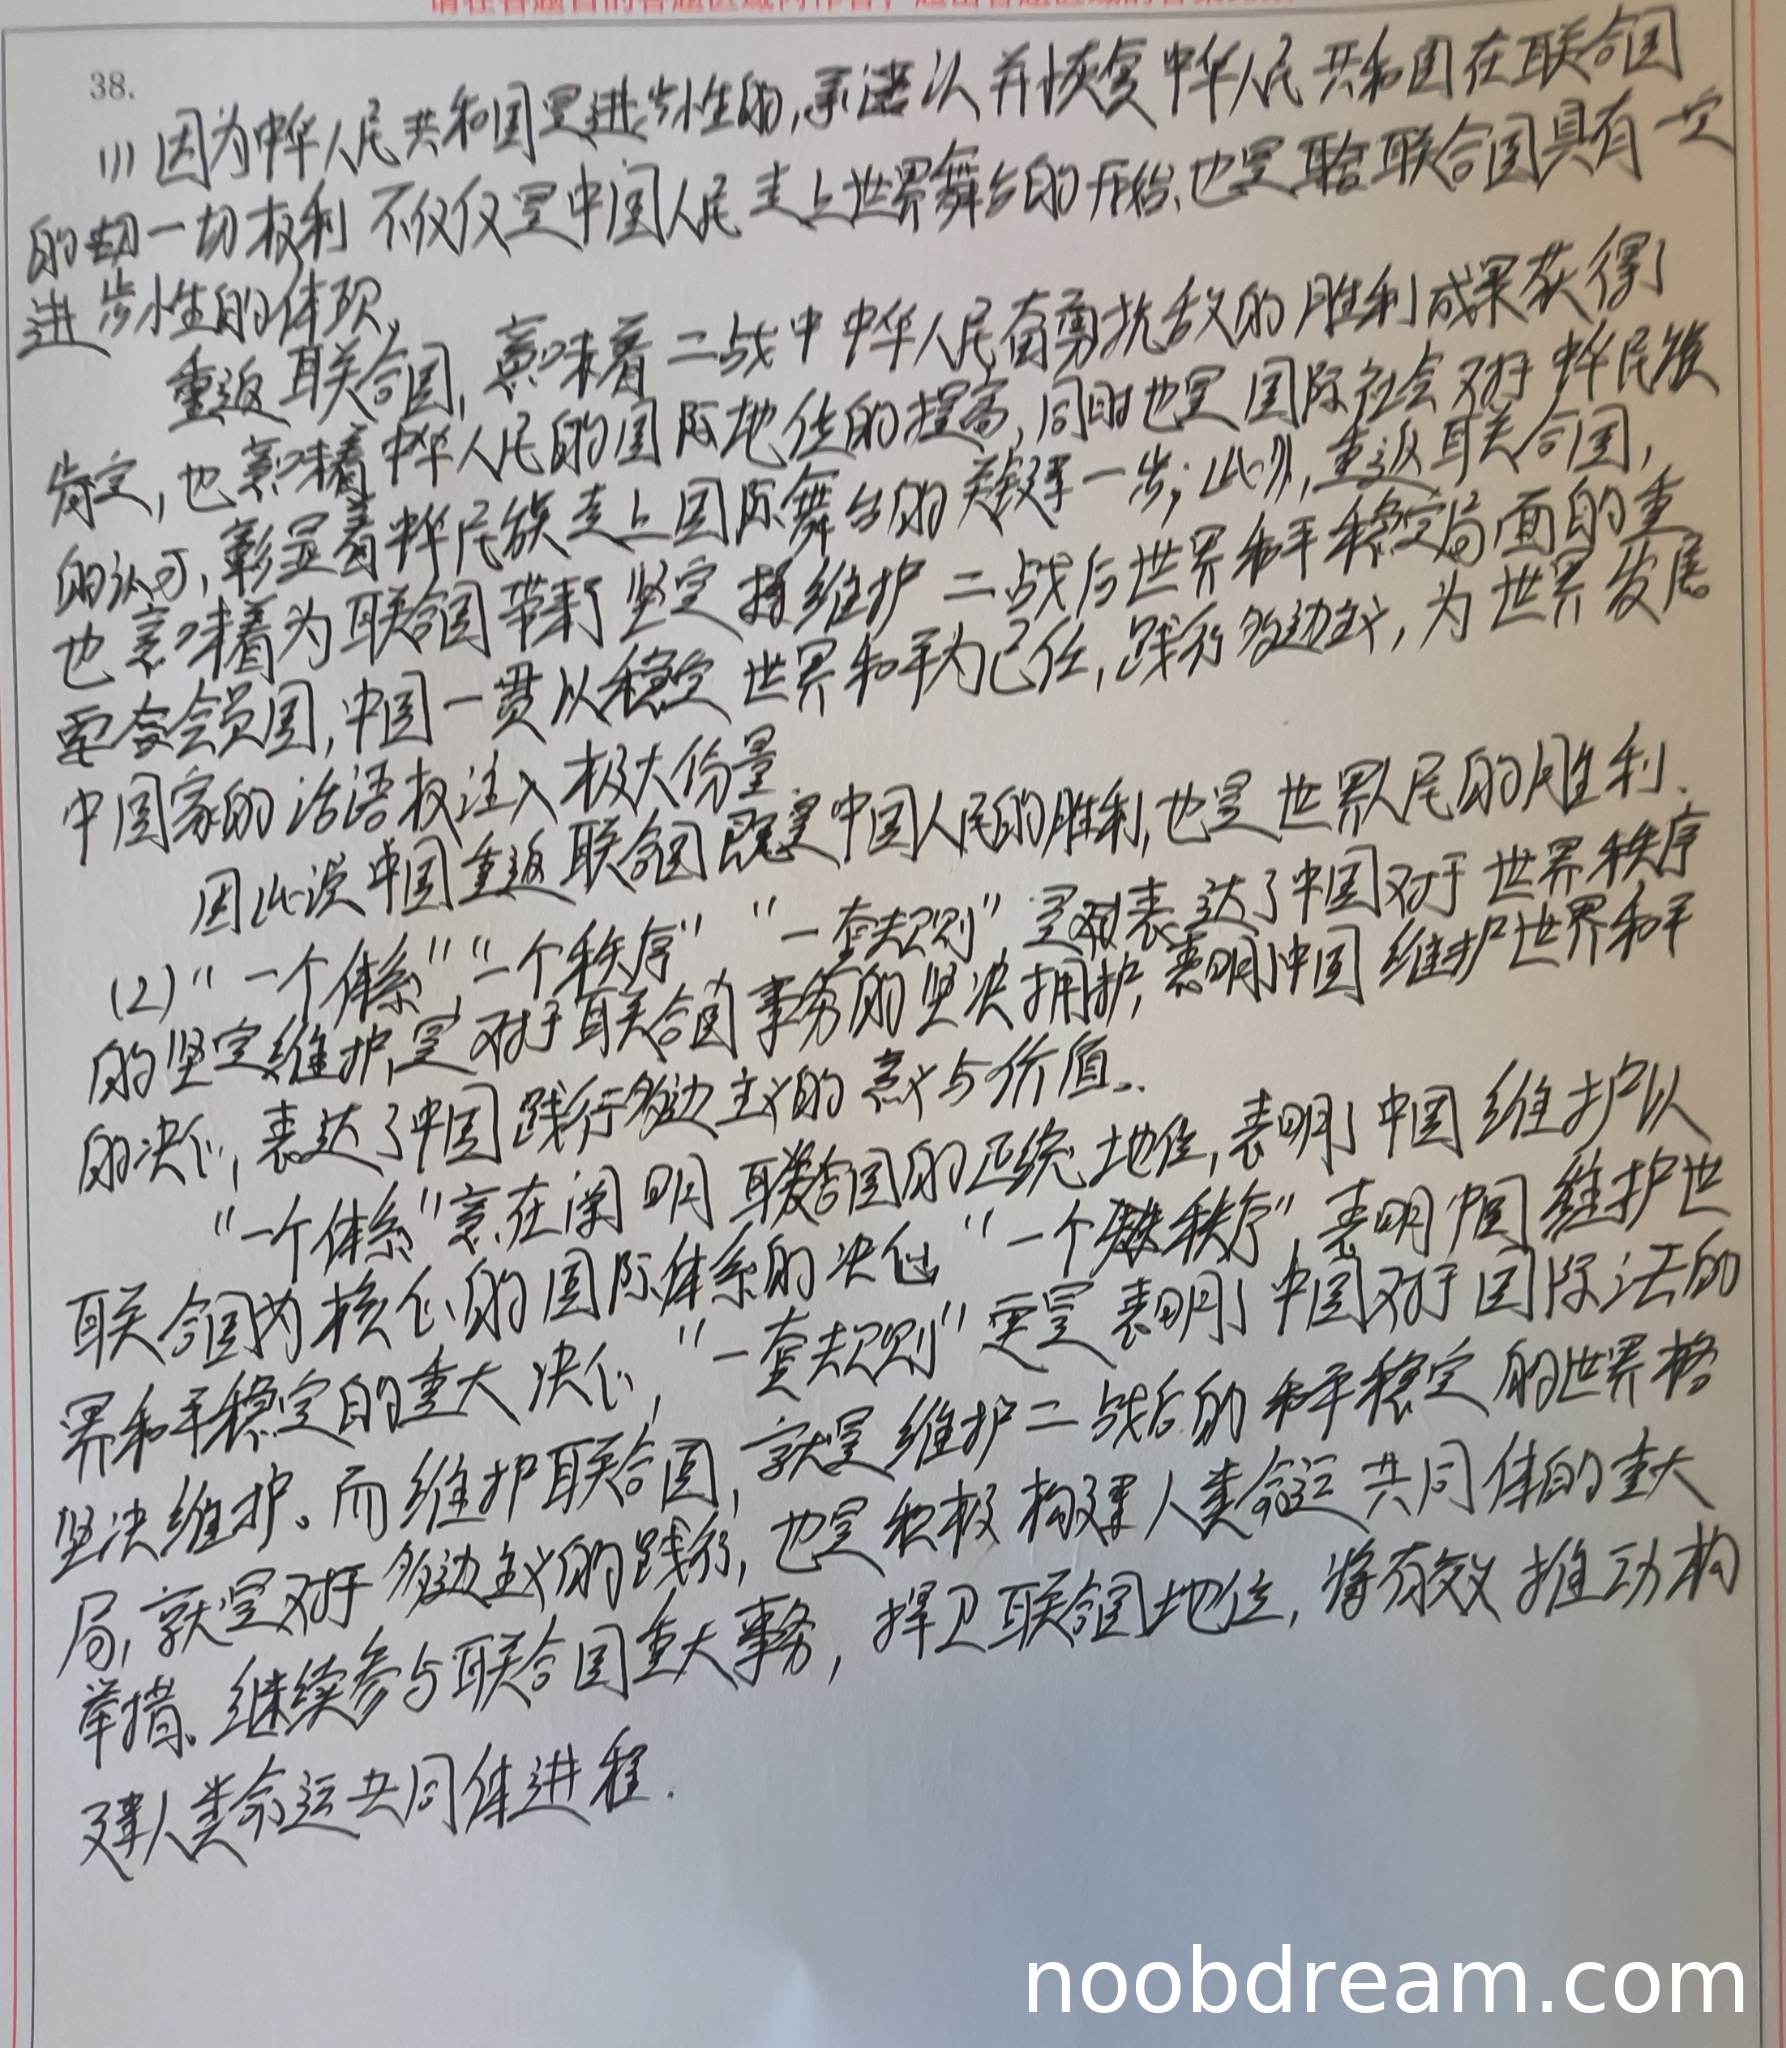 38.
(1) 因为中华人民共和国是进步性的,承认并恢复中华人民共和国在联合国
的一切权利 不仅仅是中国人民走上世界舞台的开始,也是联合国具有一定
进步性的体现.
重返联合国,意味着二战中中华人民奋勇抗敌的胜利成果获得了
肯定,也意味着中华人民的国际地位的提高,同时也是国际社会对于中华民族
的认可,彰显着中华民族走上国际舞台的关键一步;此外,重返联合国,
也意味着为联合国带来了坚定维护二战后世界和平稳定局面的重
要会员国,中国一贯以稳定世界和平为己任,践行多边主义,为世界发展
中国家的话语权注入极大份量.
因此说中国重返联合国既是中国人民的胜利,也是世界人民的胜利.
(2)"一个体系""一个秩序" "一套规则"是表达了中国对于世界秩序
的坚定维护,是对于联合国事务的坚决拥护,表明了中国维护世界和平
的决心,表达了中国践行多边主义的意义与价值..
"一个体系"意在阐明联合国的正统地位,表明了中国维护以
联合国为核心的国际体系的决心 "一个秩序",表明中国维护世
界和平稳定的重大决心,"一套规则"更是表明了中国对于国际法的
坚决维护。而维护联合国,就是维护二战后的和平稳定的世界格
局,就是对于多边主义的践行,也是积极构建人类命运共同体的重大
举措.继续参与联合国重大事务,捍卫联合国地位,将有效推动构
建人类命运共同体进程.
noobdream.com